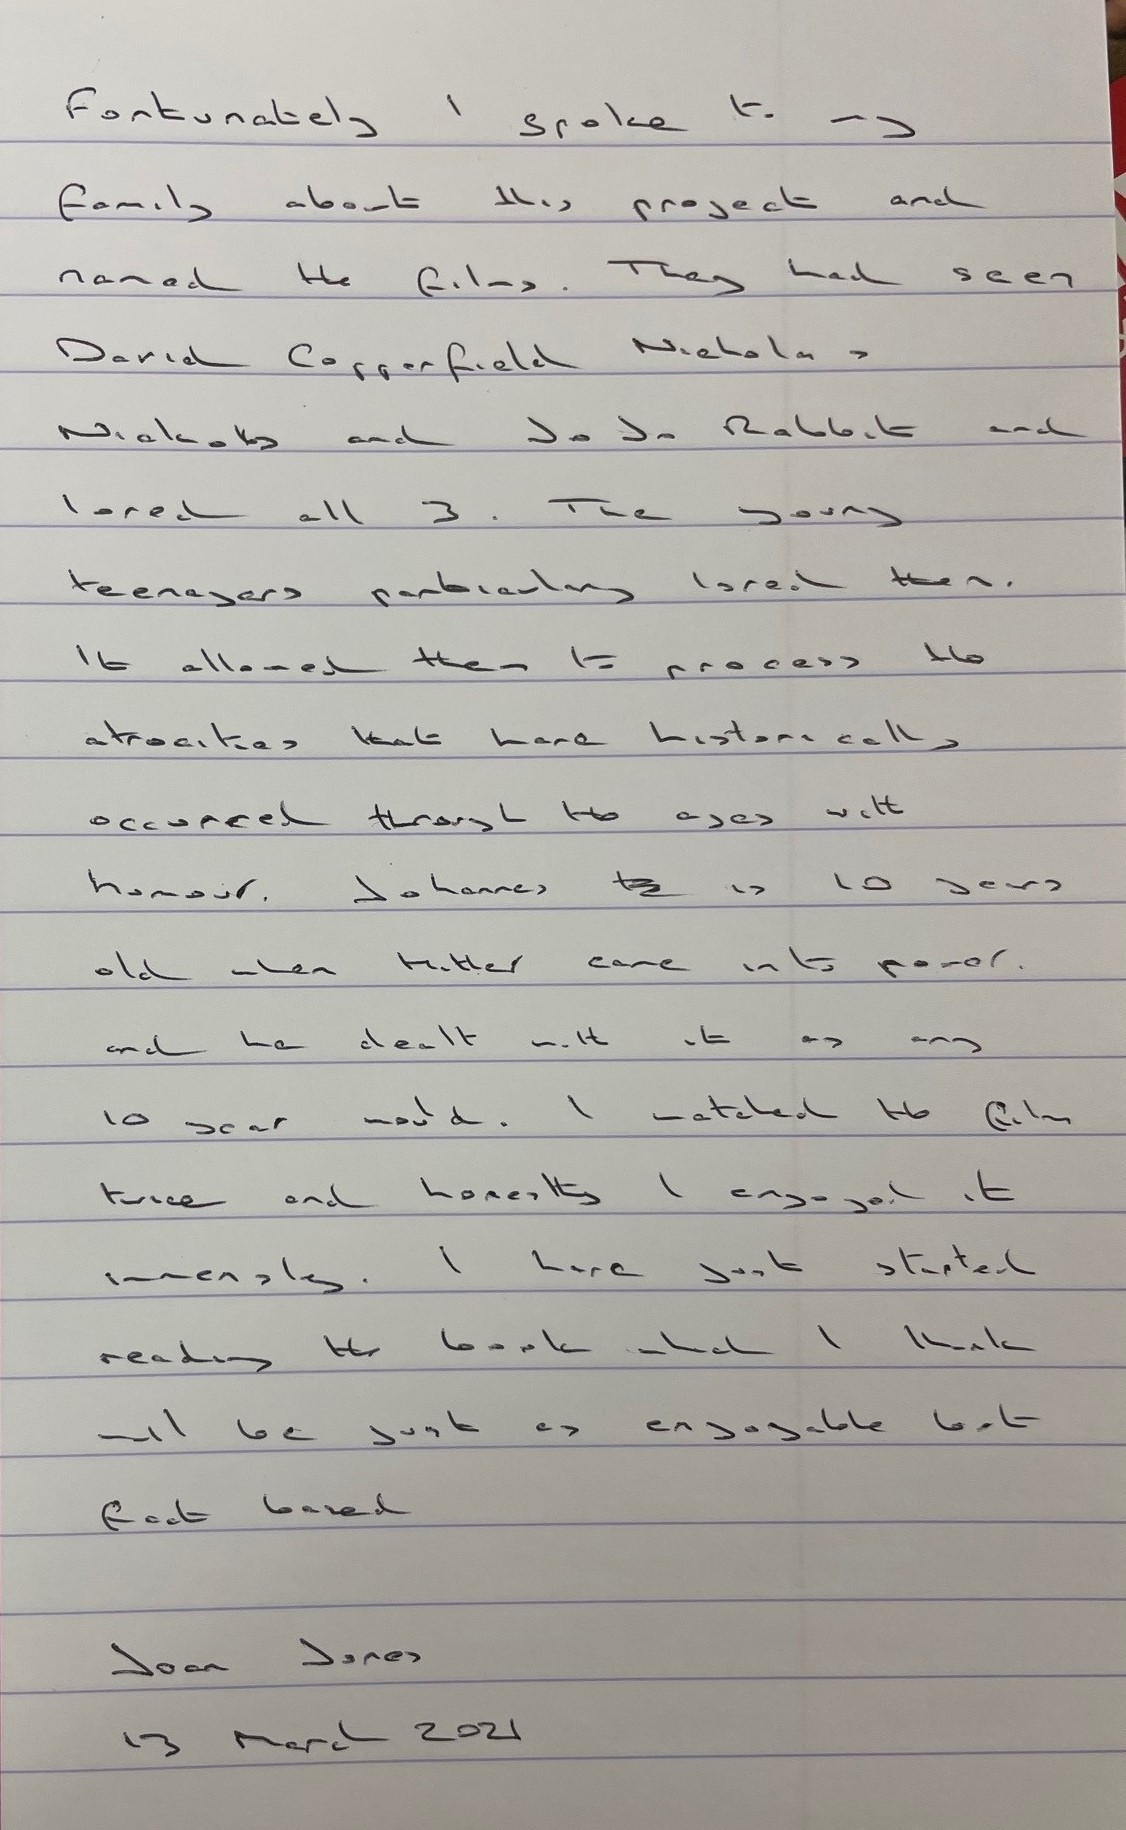 Fortunately I spoke to my
family about this project and
named the films. They had seen
David Copperfield Nicholas
Nickolby and Jo Jo Rabbit and
loved all 3. The young
teenagers particularly loved them.
It allowed them to process the
atrocities that have historically
occurred through the ages with
humour. Johannes is 10 years
old when Hitler came into power.
and he dealt with it as any
10 year would. I watched the film
twice and honestly I enjoyed it
immensley. I have just started
reading the book which I think
will be just as enjoyable but
fact based
Joan Jones
13 March 2021